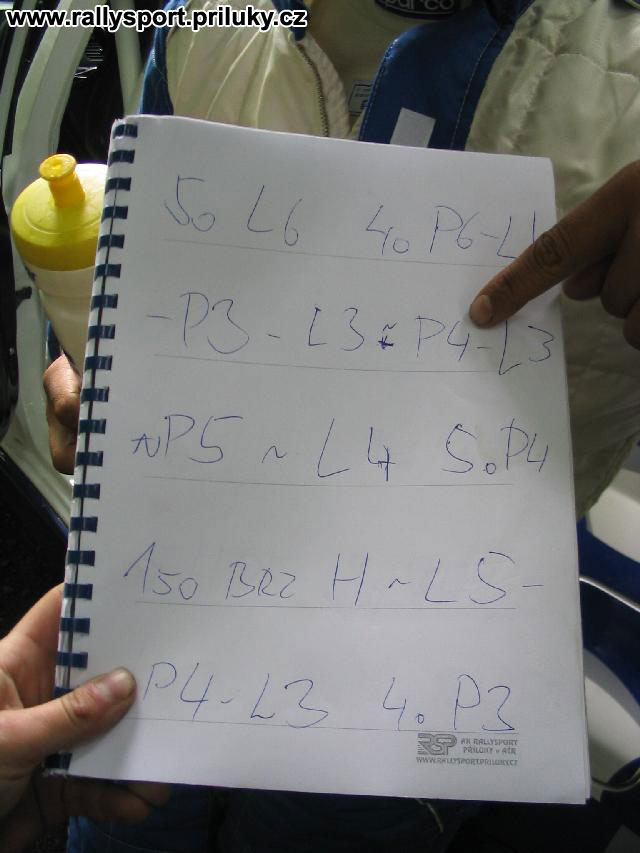 www.rallysport.priluky.cz
50 L6 40 P6-L
-P3 - L3 ~ P4-L3
~P5 ~ L4 50 P4
150 BRZ H ~ L5 -
P4 - L3 40 P3
RSP AK RALLYSPORT
PŘÍLUKY v AČR
WWW.RALLYSPORT.PRILUKY.CZ